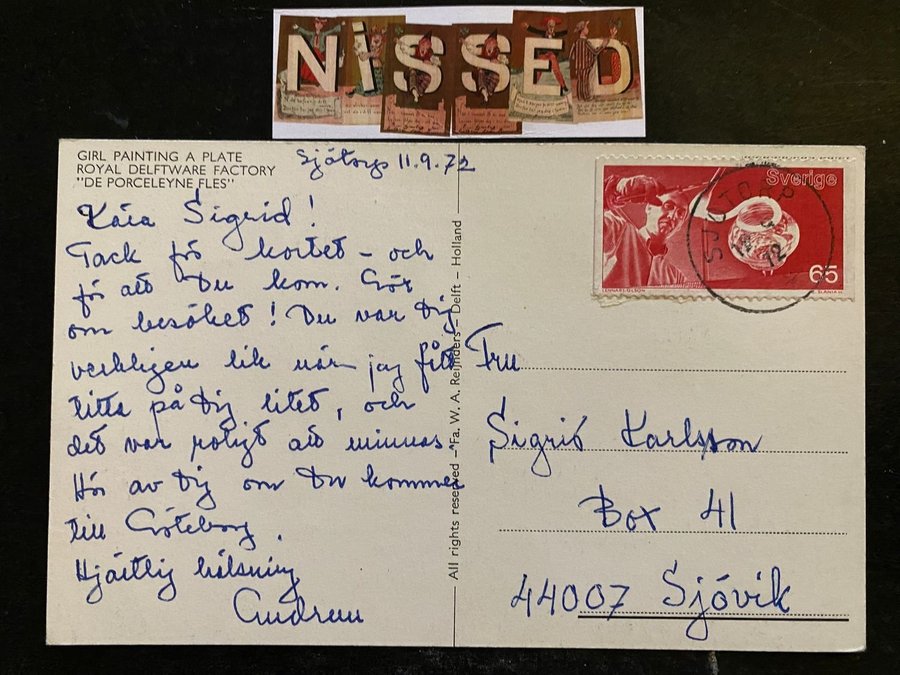 NiSSED
GIRL PAINTING A PLATE
ROYAL DELFTWARE FACTORY
"DE PORCELEYNE FLES"
Sjötorp 11.9.72
Kära Sigrid!
Tack för kortet - och
för att Du kom. Gör
om besöket! Du var Dig
verkligen lik när jag fått
titta på Dig litet, och
det var roligt att minnas.
Hör av Dig om Du kommer
till Göteborg.
Hjärtlig hälsning
Gudrun
All rights reserved - Fa. W. A. Reijnders - Delft - Holland
Sverige
65
LENNART OLSON
C. SLANIA SC
SJÖTORP
72
Fru
Sigrid Karlsson
Box 41
44007 Sjövik